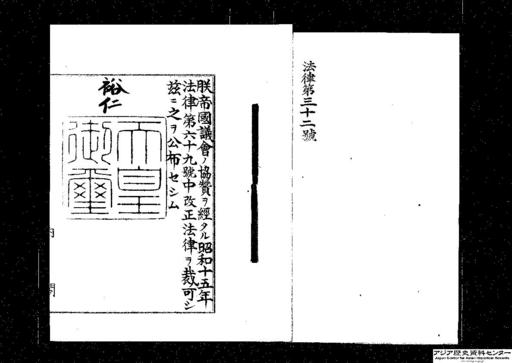 朕帝國議會ノ協贊ヲ經タル昭和十五年
法律第六十九號中改正法律ヲ裁可シ
玆ニ之ヲ公布セシム
裕仁
天皇
御璽
内閣
法律第三十二號
アジア歴史資料センター
Japan Center for Asian Historical Records